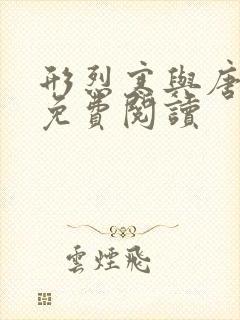 形烈寒與唐
免費閱讀
雲煙飛